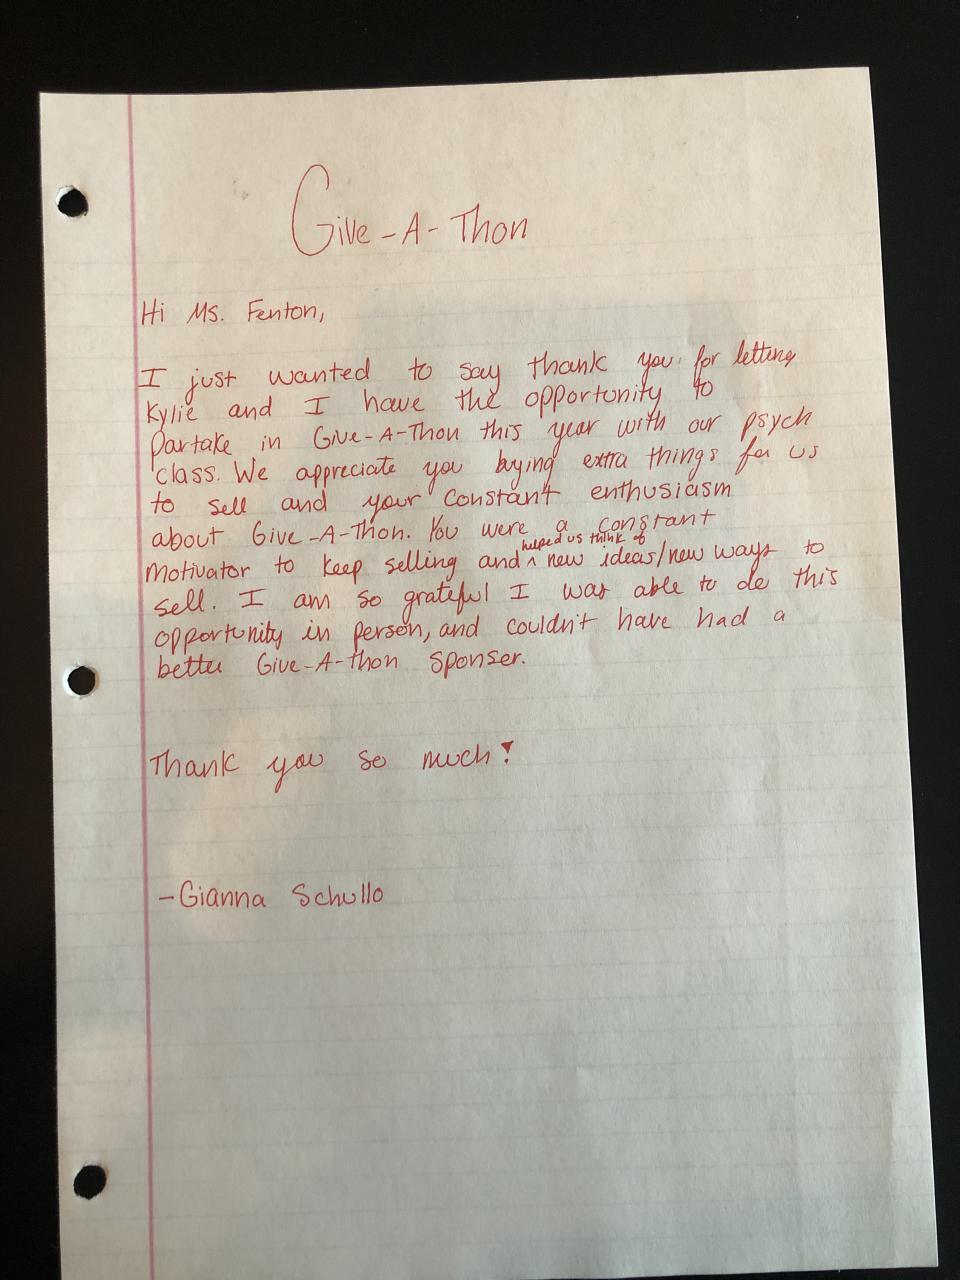 Give-A-Thon
Hi Ms. Fenton,
I just wanted to say thank you for letting
Kylie and I have the opportunity to
partake in Give-A-Thon this year with our psych
class. We appreciate you buying extra things for us
to sell and your constant enthusiasm
about Give-A-Thon. You were a constant
helped us think of
motivator to keep selling and ^ new ideas/new ways to
sell. I am so grateful I was able to do this
opportunity in person, and couldn't have had a
better Give-A-thon sponser.
Thank you so much!
-Gianna Schullo